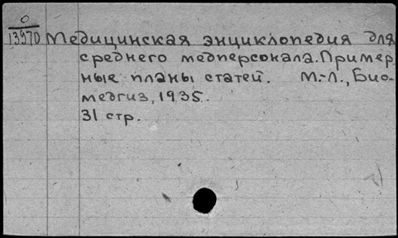 О
13970 Медицинская энциклопедия для
среднего медперсонала. Пример
ные планы статей. М.-Л., Био-
медгиз, 1935.
31 стр.